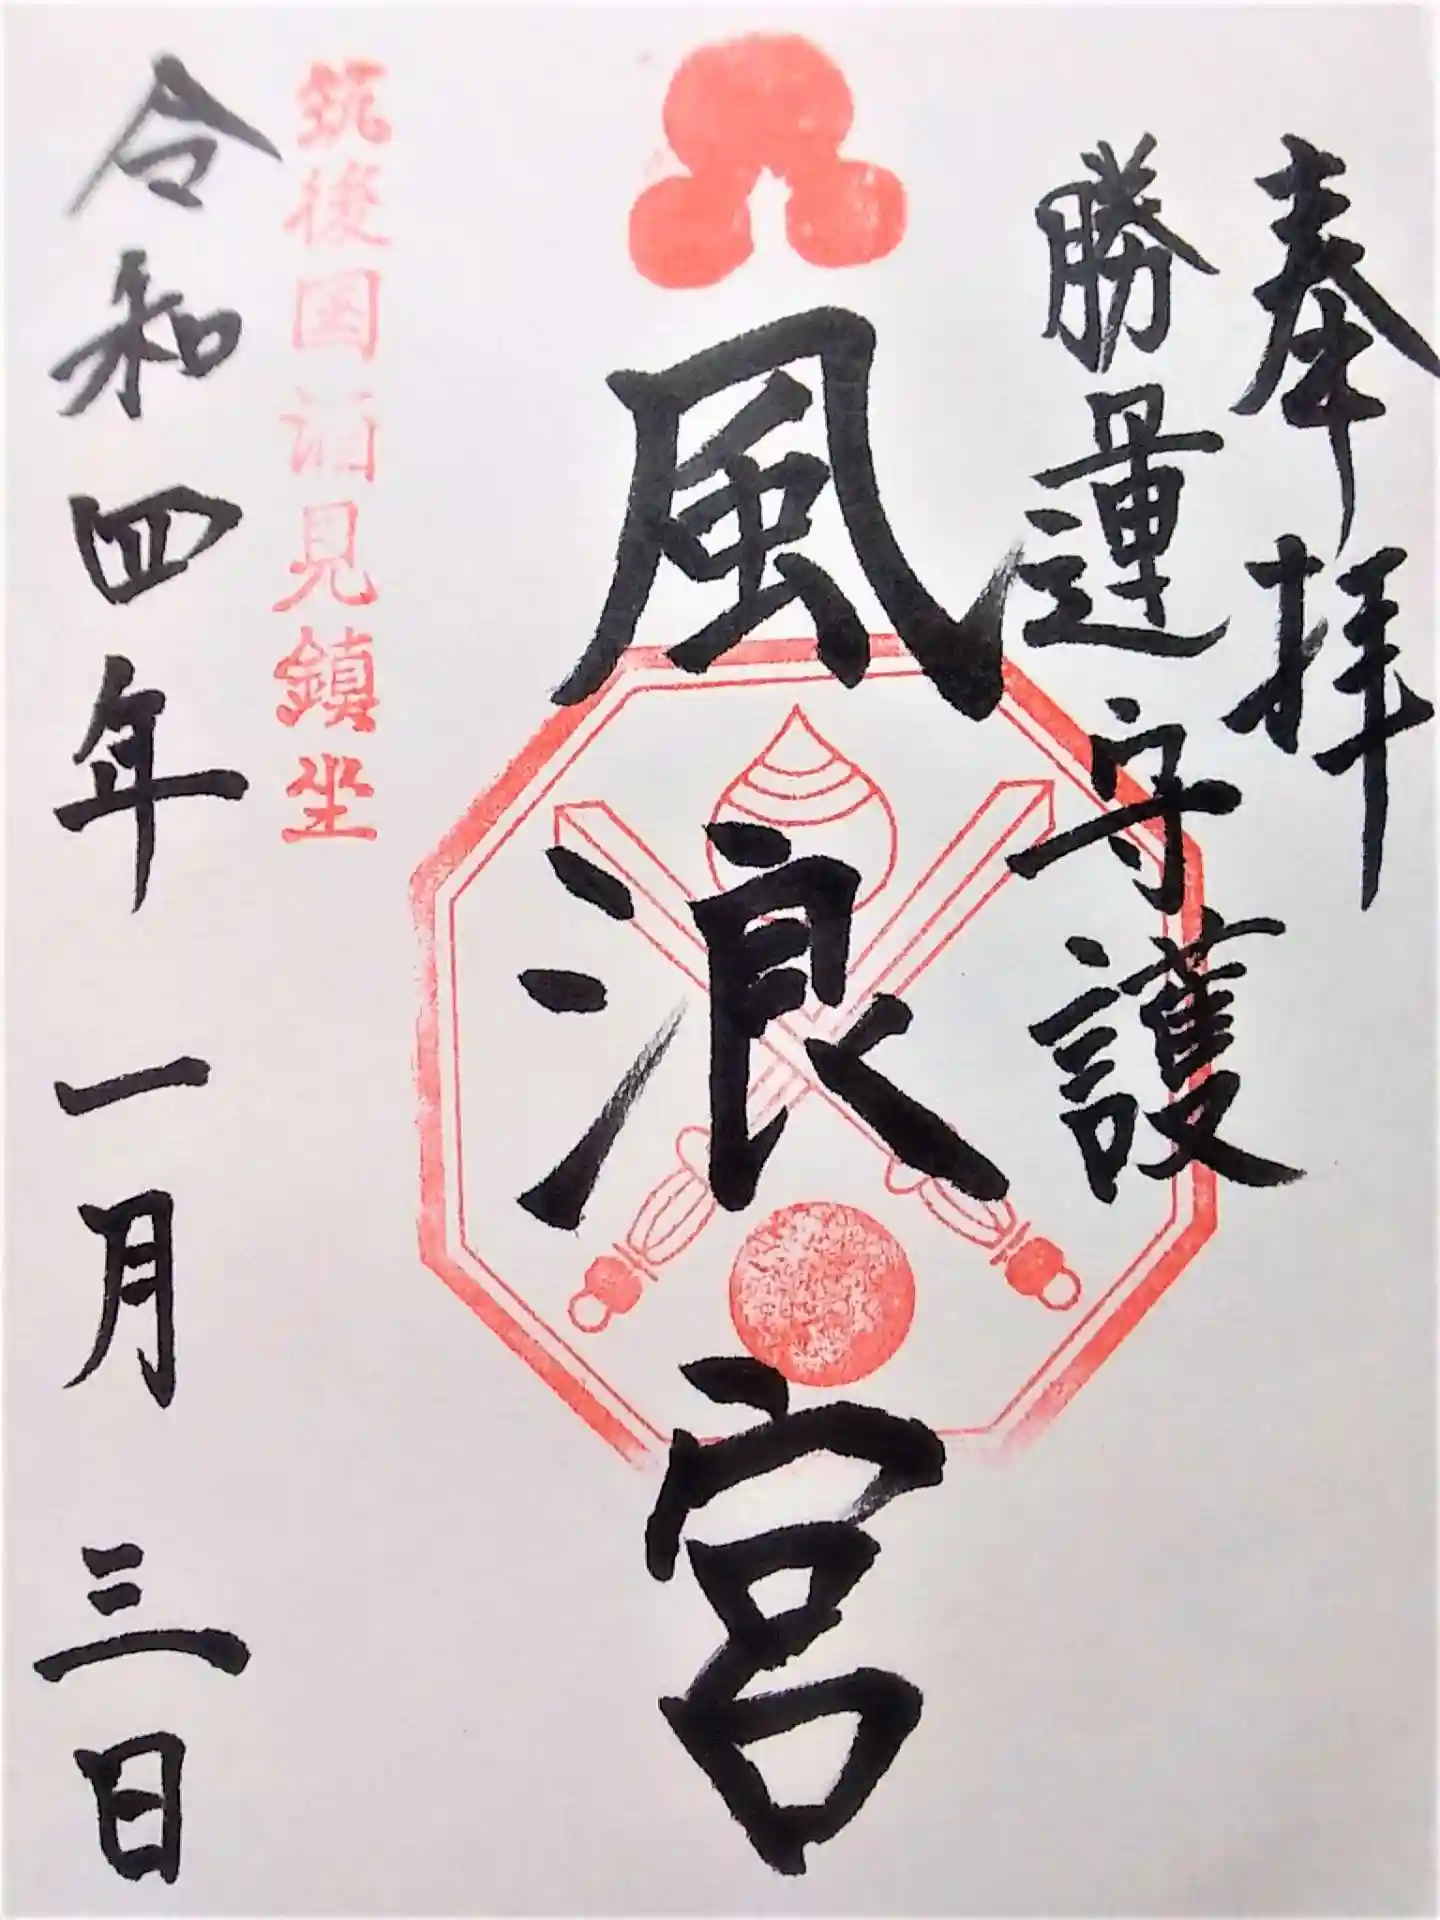 奉拝
勝運守護
風浪宮
筑後国酒見鎮坐
令和四年一月三日